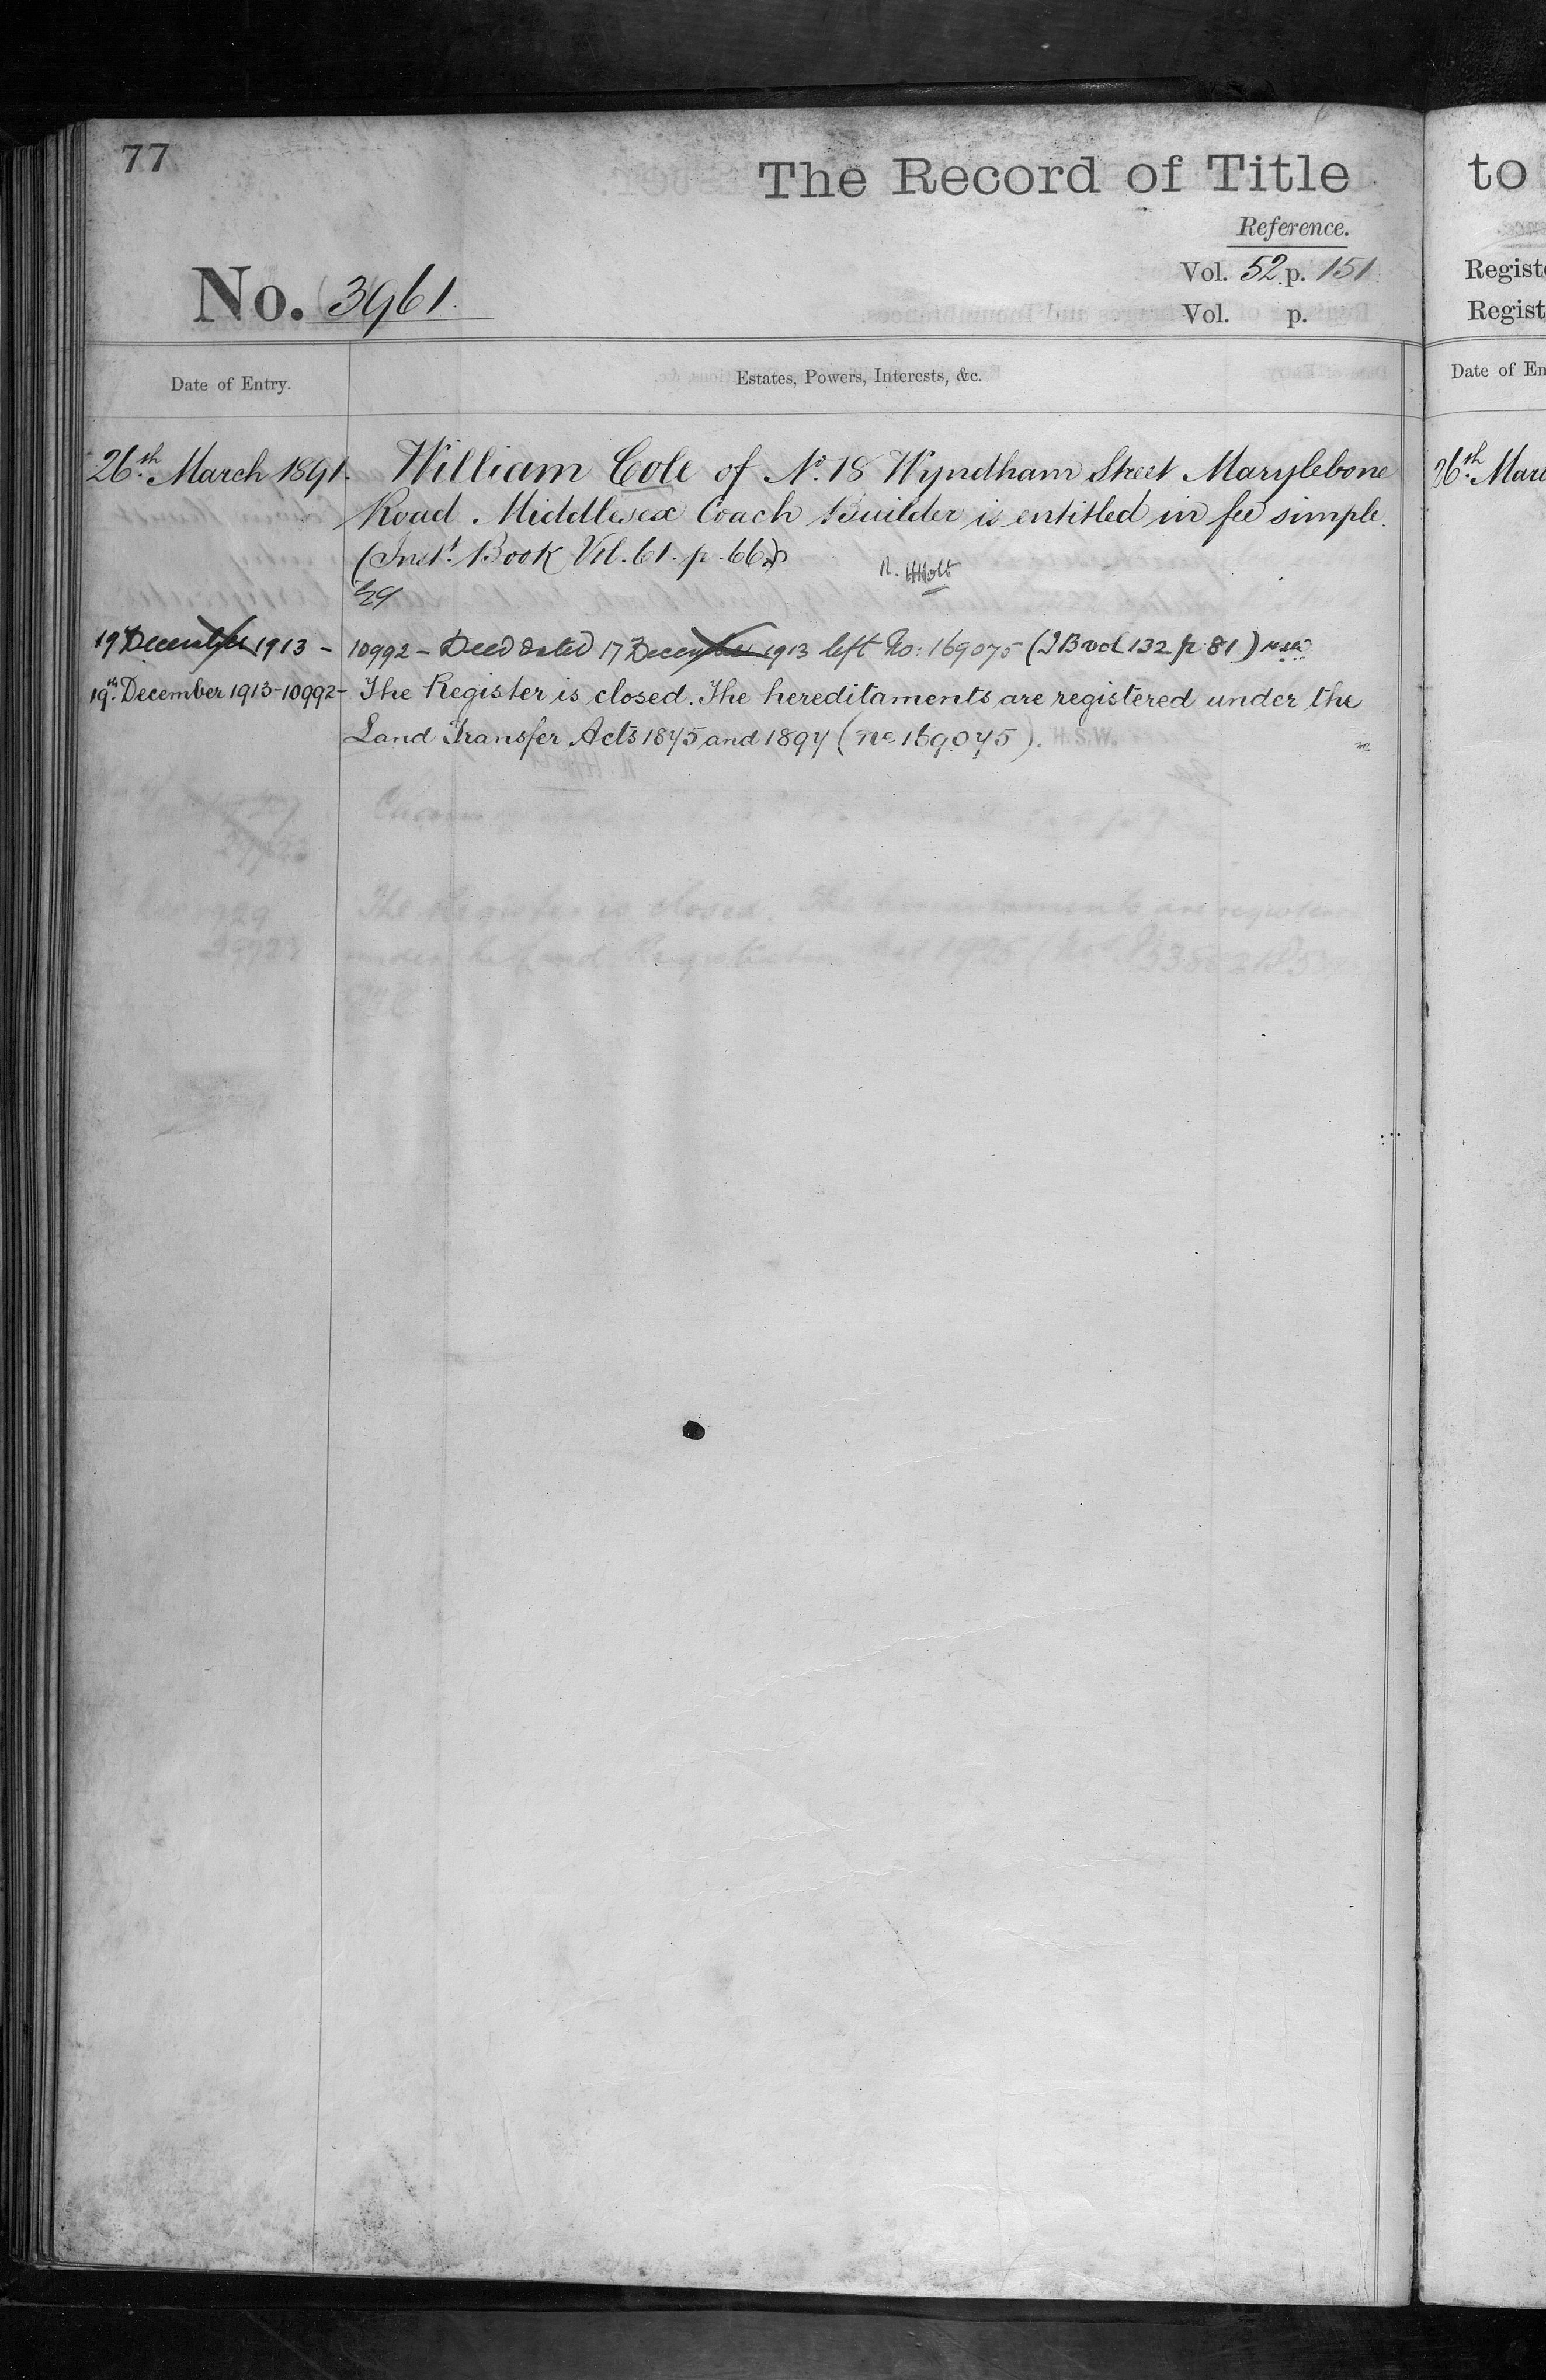 77
The Record of Title
Reference.
Vol. 52. p. 151.
No. 3961.
Vol. p.
Date of Entry.
Estates, Powers, Interests, &c.
26th March 1891. William Cole of No. 18 Wyndham Street Marylebone
Road Middlesex Coach Builder is entitled in fee simple.
(Inst. Book Vol. 61. p. 66.)
R. H Holt
19 December 1913 - 10992 - Deed dated 17 December 1913 left No: 169075 (IB vol 132 p. 81)
19th December 1913 - 10992 - The Register is closed. The hereditaments are registered under the
Land Transfer Acts 1875 and 1897 (No 169075). H.S.W.
to
Regist
Regist
Date of En
26th Marc